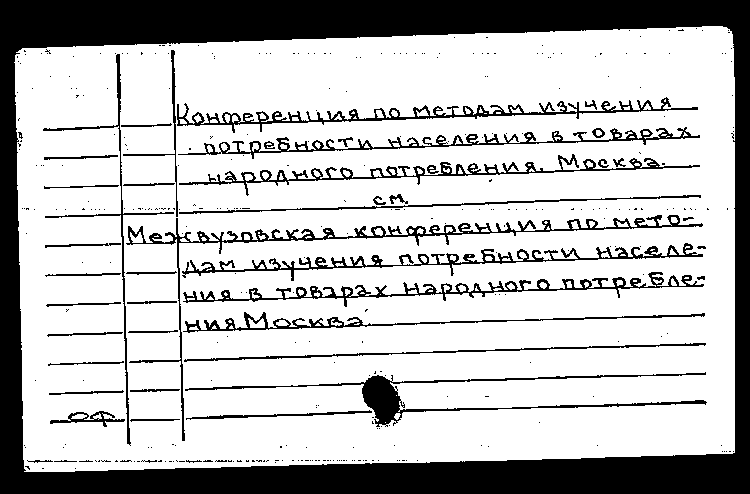 Конференция по методам изучения
потребности населения в товарах
народного потребления. Москва.
см.
Межвузовская конференция по мето-
дам изучения потребности населе-
ния в товарах народного потребле-
ния. Москва.
ОФ